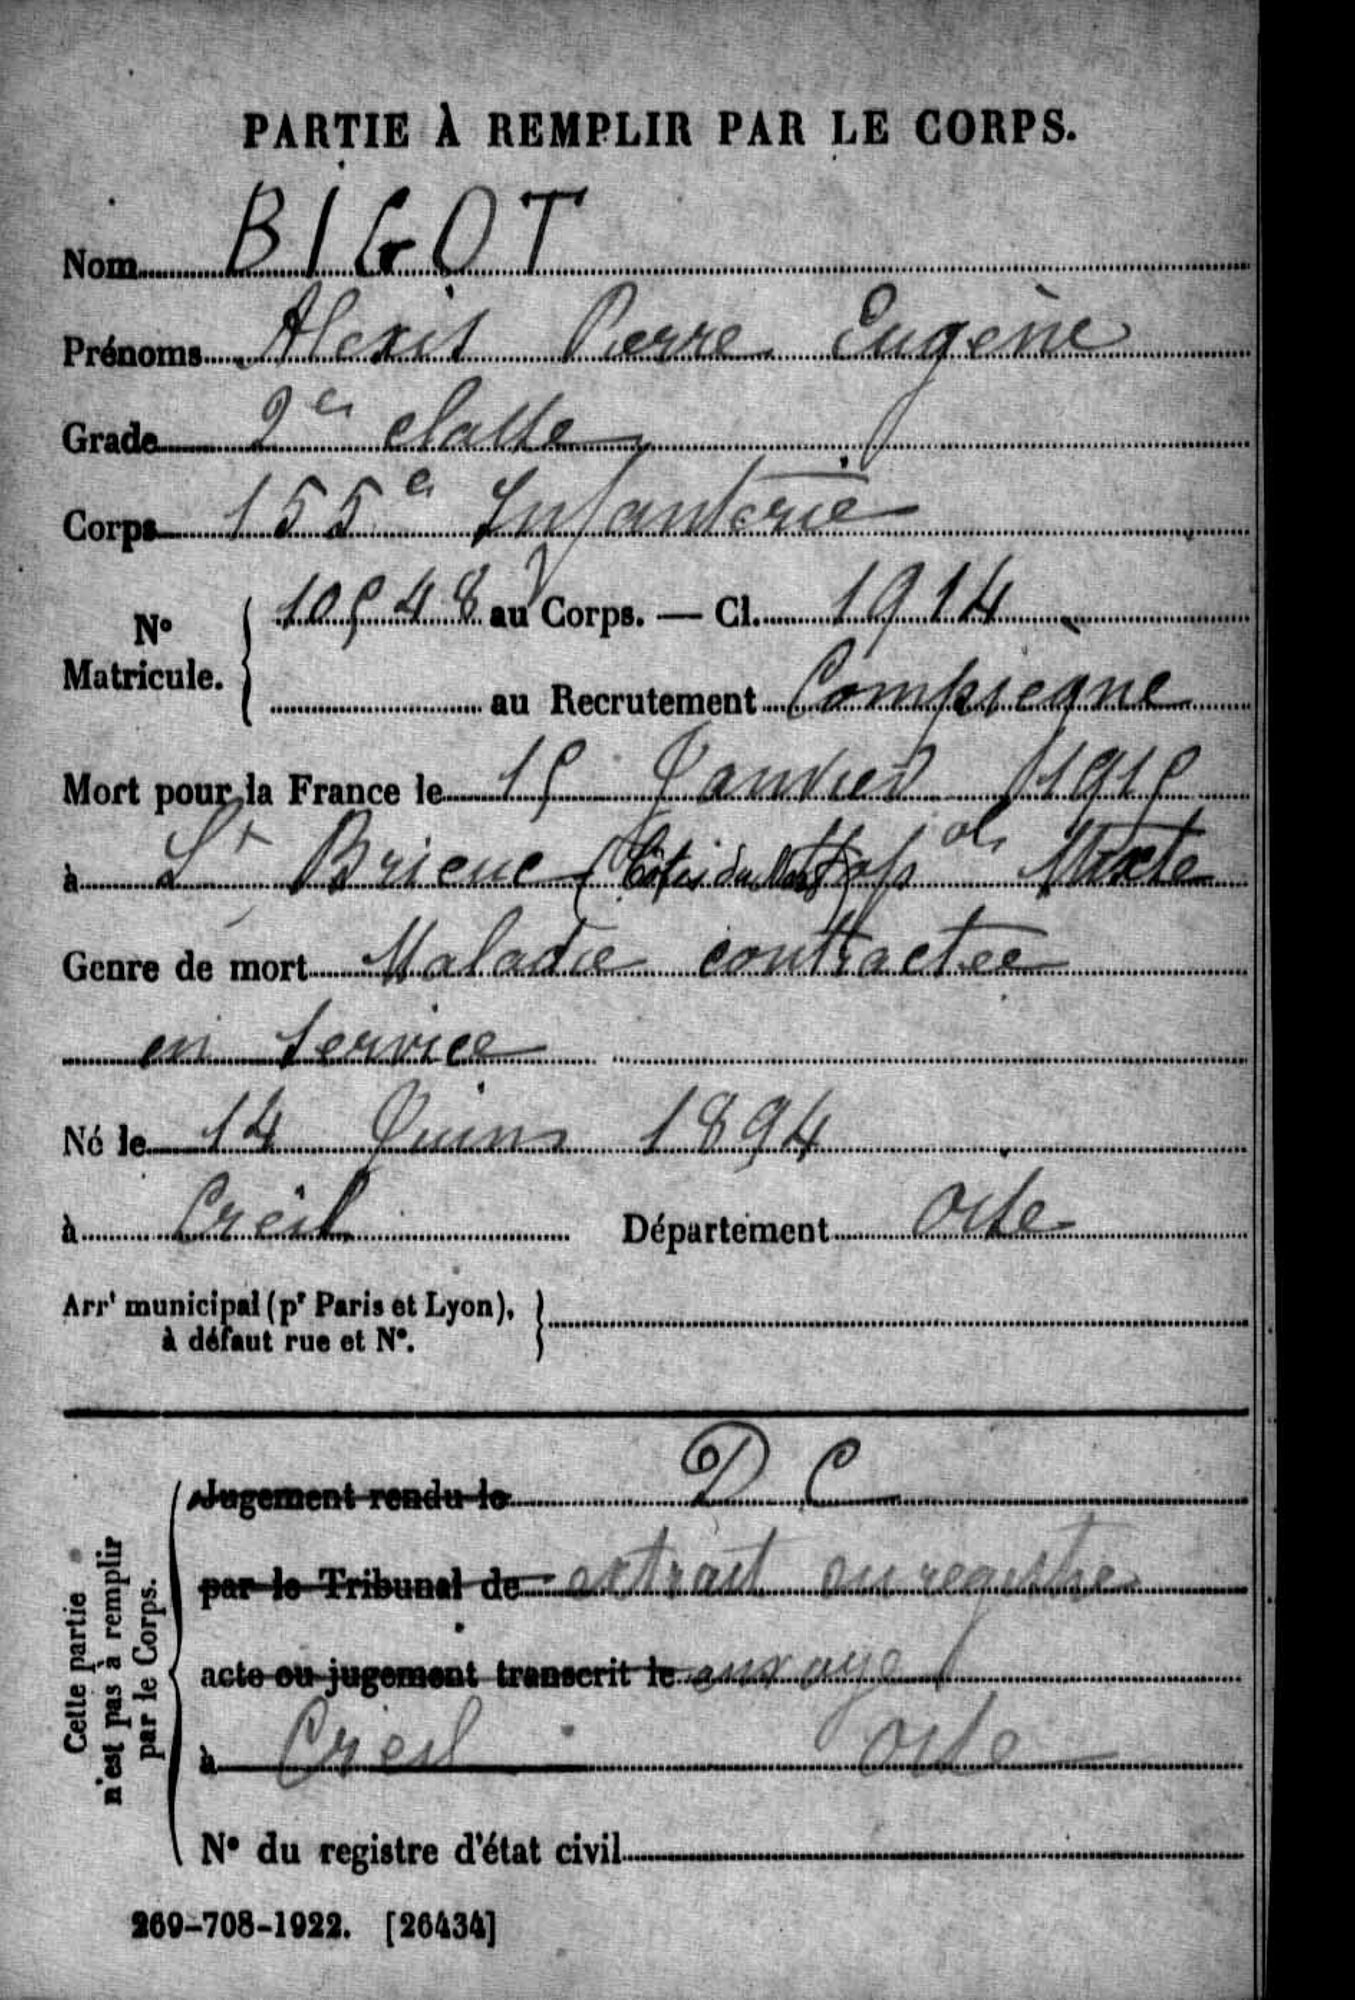 PARTIE À REMPLIR PAR LE CORPS.
Nom BIGOT
Prénoms Alexis Pierre Eugène
Grade 2e classe
Corps 155e Infanterie
N° Matricule. 10548 au Corps. — Cl. 1914
au Recrutement Compiègne
Mort pour la France le 15 Janvier 1915
à St Brieuc (Côtes du Nord) Hopal Mixte
Genre de mort Maladie contractée
en service
Né le 14 Juin 1894
à Creil Département Oise
Arrt municipal (pr Paris et Lyon),
à défaut rue et N°.
Cette partie
n'est pas à remplir
par le Corps.
Jugement rendu le D C
par le Tribunal de extrait du registre
acte ou jugement transcrit le envoyé
à Creil Oise
N° du registre d'état civil
269-708-1922. [26434]